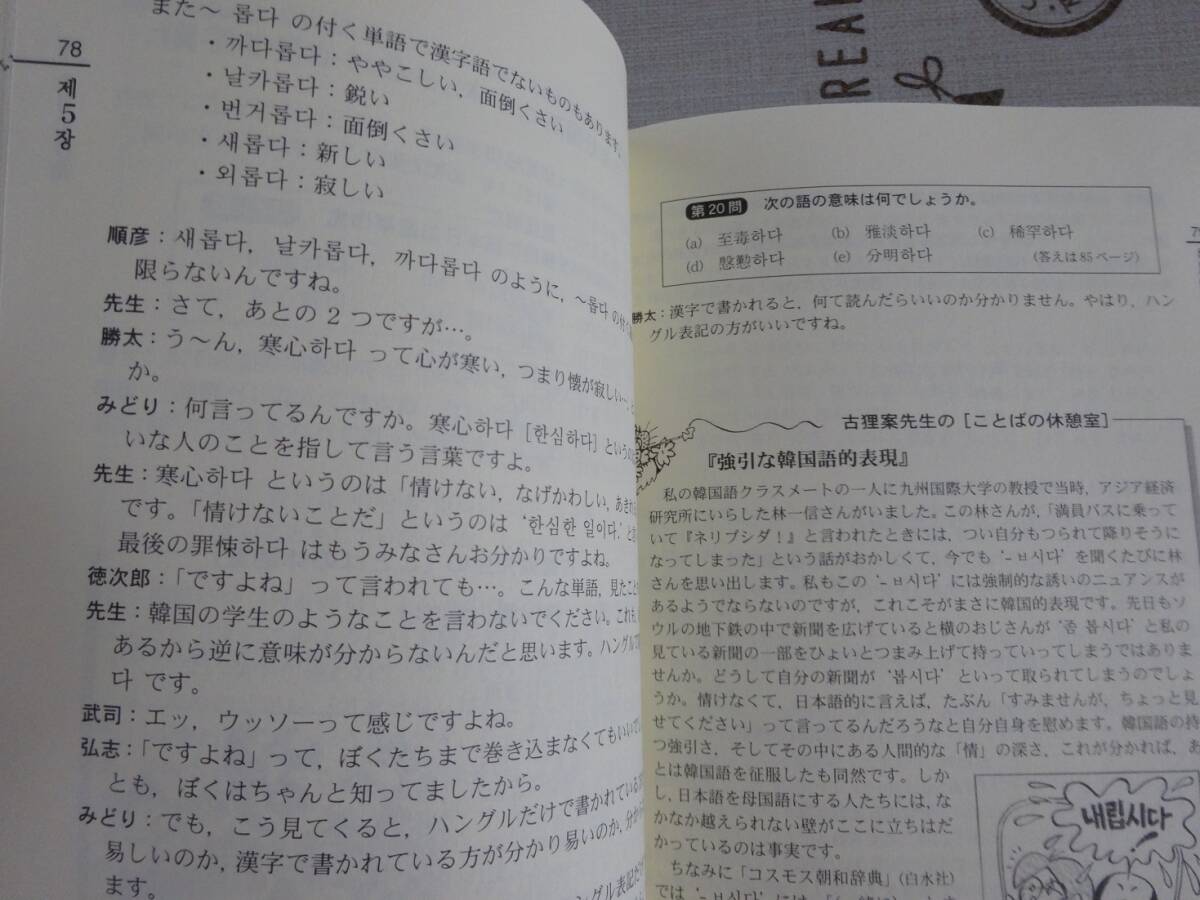 78
제5장
また～ 롭다 の付く単語で漢字語でないものもあります。
・까다롭다：ややこしい，面倒くさい
・날카롭다：鋭い
・번거롭다：面倒くさい
・새롭다：新しい
・외롭다：寂しい
順彦：새롭다，날카롭다，까다롭다 のように，～롭다 の付く
限らないんですね。
先生：さて，あとの 2 つですが…。
勝太：う～ん，寒心하다 って心が寒い，つまり懐が寂しい…
か。
みどり：何言ってるんですか。寒心하다［한심하다］という
いな人のことを指して言う言葉ですよ。
先生：寒心하다 というのは「情けない，なげかわしい，あきれ
です。「情けないことだ」というのは ‘한심한 일이다.’ と
最後の罪悚하다 はもうみなさんお分かりですよね。
徳次郎：「ですよね」って言われても…。こんな単語，見たこと
先生：韓国の学生のようなことを言わないでください。これも
あるから逆に意味が分からないんだと思います。ハングルで
다 です。
武司：エッ，ウッソーって感じですよね。
弘志：「ですよね」って，ぼくたちまで巻き込まなくてもいいで
とも，ぼくはちゃんと知ってましたから。
みどり：でも，こう見てくると，ハングルだけで書かれている
易しいのか，漢字で書かれている方が分かり易いのか，分か
ます。
ハングル表記だ
79
第20問 次の語の意味は何でしょうか。
(a) 至毒하다 (b) 雅淡하다 (c) 稀罕하다
(d) 慇懃하다 (e) 分明하다 (答えは85ページ)
勝太：漢字で書かれると，何て読んだらいいのか分かりません。やはり，ハン
グル表記の方がいいですね。
古狸案先生の［ことばの休憩室］
『強引な韓国語的表現』
私の韓国語クラスメートの一人に九州国際大学の教授で当時，アジア経済
研究所にいらした林一信さんがいました。この林さんが，「満員バスに乗って
いて『ネリプシダ！』と言われたときには，つい自分もつられて降りそうに
なってしまった」という話がおかしくて，今でも ‘-ㅂ시다’ を聞くたびに林
さんを思い出します。私もこの ‘-ㅂ시다’ には強制的な誘いのニュアンスが
あるようでならないのですが，これこそがまさに韓国的表現です。先日もソ
ウルの地下鉄の中で新聞を広げていると横のおじさんが ‘좀 봅시다’ と私の
見ている新聞の一部をひょいとつまみ上げて持っていってしまうではありま
せんか。どうして自分の新聞が ‘봅시다’ といって取られてしまうのでしょ
うか。情けなくて，日本語的に言えば，たぶん「すみませんが，ちょっと見
せてください」って言ってるんだろうなと自分自身を慰めます。韓国語の持
つ強引さ，そしてその中にある人間的な「情」の深さ，これが分かれば，あ
とは韓国語を征服したも同然です。しか
し，日本語を母国語にする人たちには，な
かなか越えられない壁がここに立ちはだ
かっているのは事実です。
ちなみに「コスモス朝和辞典」（白水社）
では ‘-ㅂ시다’ は
내립시다
REA